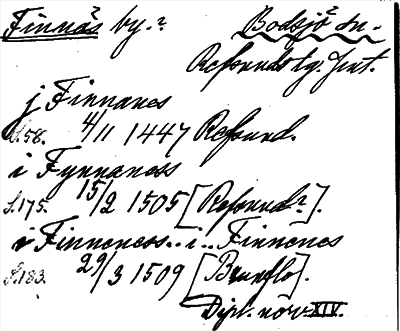 Finnäs by. Bodsjö sn.
Refsunds tg. Jmt.
j Finnanes
S.58. 4/11 1447 Refsund.
i Fynnaness
S.175. 15/2 1505 [Refsund?].
i Finneness.. i.. Finnenes
S.183. 29/3 1509 [Brunflo].
Dipl. norv. XIV.